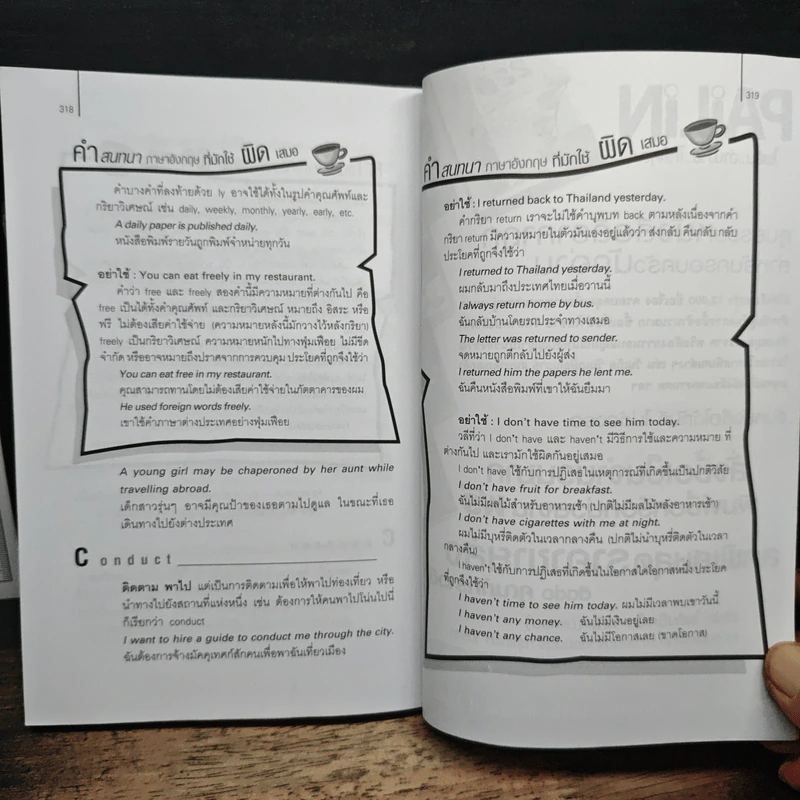 318
คำ สนทนา ภาษาอังกฤษ ที่มักใช้ ผิด เสมอ
คำบางคำที่ลงท้ายด้วย ly อาจใช้ได้ทั้งในรูปคำคุณศัพท์และ
กริยาวิเศษณ์ เช่น daily, weekly, monthly, yearly, early, etc.
A daily paper is published daily.
หนังสือพิมพ์รายวันถูกพิมพ์จำหน่ายทุกวัน
อย่าใช้ : You can eat freely in my restaurant.
คำว่า free และ freely สองคำนี้มีความหมายที่ต่างกันไป คือ
free เป็นได้ทั้งคำคุณศัพท์ และกริยาวิเศษณ์ หมายถึง อิสระ หรือ
ฟรี ไม่ต้องเสียค่าใช้จ่าย (ความหมายหลังนี้มักวางไว้หลังกริยา)
freely เป็นกริยาวิเศษณ์ ความหมายหนักไปทางฟุ่มเฟือย ไม่มีขีด
จำกัด หรืออาจหมายถึงปราศจากการควบคุม ประโยคที่ถูกจึงใช้ว่า
You can eat free in my restaurant.
คุณสามารถทานโดยไม่ต้องเสียค่าใช้จ่ายในภัตตาคารของผม
He used foreign words freely.
เขาใช้คำภาษาต่างประเทศอย่างฟุ่มเฟือย
A young girl may be chaperoned by her aunt while
travelling abroad.
เด็กสาวรุ่นๆ อาจมีคุณป้าของเธอตามไปดูแล ในขณะที่เธอ
เดินทางไปยังต่างประเทศ
Conduct
ติดตาม พาไป แต่เป็นการติดตามเพื่อให้พาไปท่องเที่ยว หรือ
นำทางไปยังสถานที่แห่งหนึ่ง เช่น ต้องการให้คนพาไปโน่นไปนี่
ก็เรียกว่า conduct
I want to hire a guide to conduct me through the city.
ฉันต้องการจ้างมัคคุเทศก์สักคนเพื่อพาฉันเที่ยวเมือง
319
คำ สนทนา ภาษาอังกฤษ ที่มักใช้ ผิด เสมอ
อย่าใช้ : I returned back to Thailand yesterday.
คำกริยา return เราจะไม่ใช้คำบุพบท back ตามหลังเนื่องจากคำ
กริยา return มีความหมายในตัวมันเองอยู่แล้วว่า ส่งกลับ คืนกลับ กลับ
ประโยคที่ถูกจึงใช้ว่า
I returned to Thailand yesterday.
ผมกลับมาถึงประเทศไทยเมื่อวานนี้
I always return home by bus.
ฉันกลับบ้านโดยรถประจำทางเสมอ
The letter was returned to sender.
จดหมายถูกตีกลับไปยังผู้ส่ง
I returned him the papers he lent me.
ฉันคืนหนังสือพิมพ์ที่เขาให้ฉันยืมมา
อย่าใช้ : I don't have time to see him today.
วลีที่ว่า I don't have และ haven't มีวิธีการใช้และความหมาย ที่
ต่างกันไป และเรามักใช้ผิดกันอยู่เสมอ
I don't have ใช้กับการปฏิเสธในเหตุการณ์ที่เกิดขึ้นเป็นปกติวิสัย
I don't have fruit for breakfast.
ฉันไม่มีผลไม้สำหรับอาหารเช้า (ปกติไม่มีผลไม้หลังอาหารเช้า)
I don't have cigarettes with me at night.
ผมไม่มีบุหรี่ติดตัวในเวลากลางคืน (ปกติไม่นำบุหรี่ติดตัวในเวลา
กลางคืน)
I haven't ใช้กับการปฏิเสธที่เกิดขึ้นในโอกาสใดโอกาสหนึ่ง ประโยค
ที่ถูกจึงใช้ว่า
I haven't time to see him today. ผมไม่มีเวลาพบเขาวันนี้
I haven't any money. ฉันไม่มีเงินอยู่เลย
I haven't any chance. ฉันไม่มีโอกาสเลย (ขาดโอกาส)